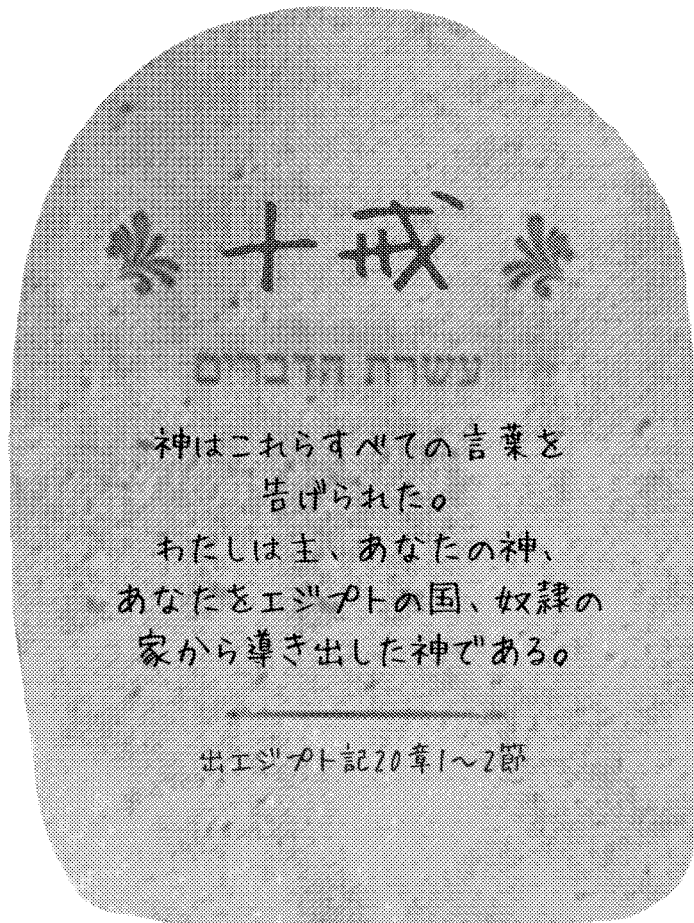 十戒
עשרת הדברים
神はこれらすべての言葉を
告げられた。
わたしは主、あなたの神、
あなたをエジプトの国、奴隷の
家から導き出した神である。
出エジプト記20章1〜2節